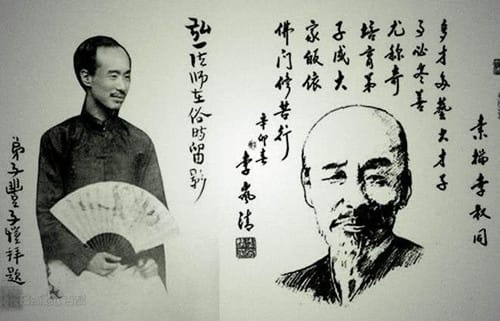 素描李叔同
多才多藝大才子
事必尽善
尤称奇
培育弟
子成大
家皈依
佛门修苦行
辛卯春
李岚清
弘一法师在俗时留影
弟子豐子愷拜题